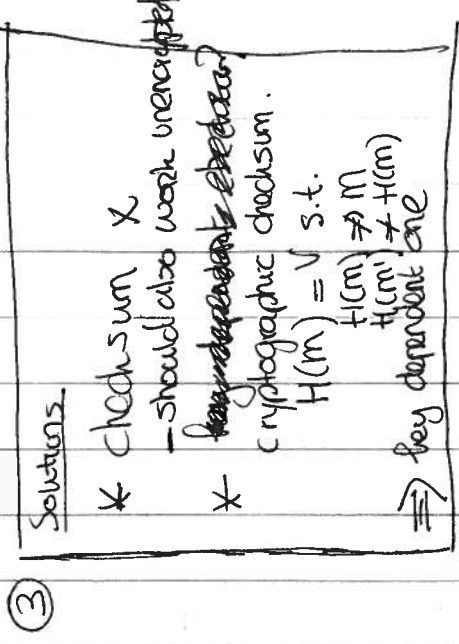 ③
Solutions
* checksum X
- should also work unencrypted
* key dependent checksum?
cryptographic checksum.
H(m) = v s.t.
H(m) ⇏ m
H(m') ≠ H(m)
⇒ key dependent one